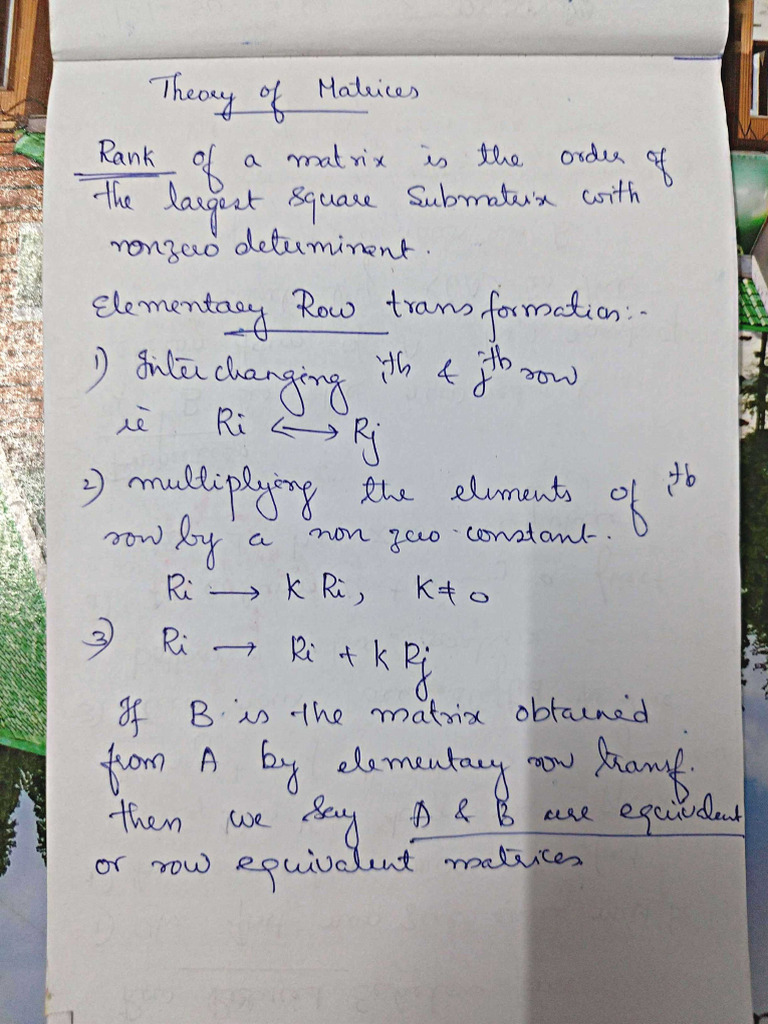 Theory of Matrices
Rank of a matrix is the order of
the largest square Submatrix with
nonzero determinent.
Elementary Row transformation:-
1) Interchanging ith & jth row
ie Ri ⟷ Rj
2) multiplying the elements of ith
row by a non zero constant.
Ri → K Ri, K ≠ 0
3) Ri → Ri + K Rj
If B is the matrix obtained
from A by elementary row transf.
then we say A & B are equivalent
or row equivalent matrices